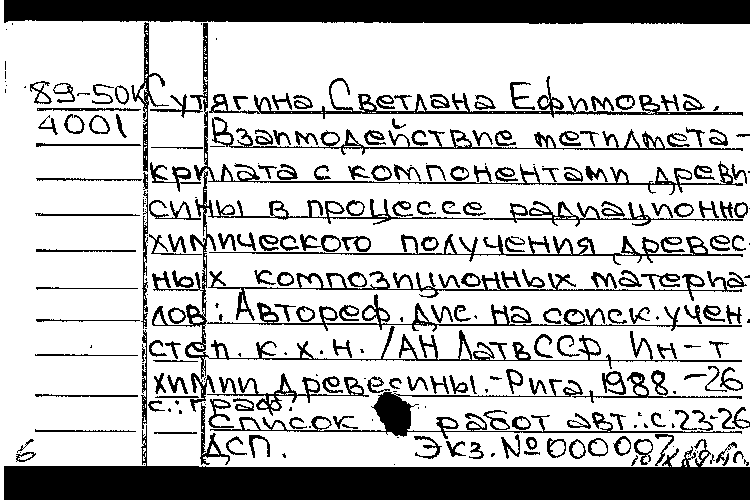 89-50К Сутягина, Светлана Ефимовна.
4001 Взаимодействие метилмета-
крилата с компонентами древе-
сины в процессе радиационно-
химического получения древес-
ных композиционных материа-
лов: Автореф. дис. на соиск. учен.
степ. к.х.н. / АН ЛатвССР, Ин-т
химии древесины.-Рига, 1988.-26
с.: граф.
Список работ авт.: с.23-26
6 ДСП. Экз. №000007